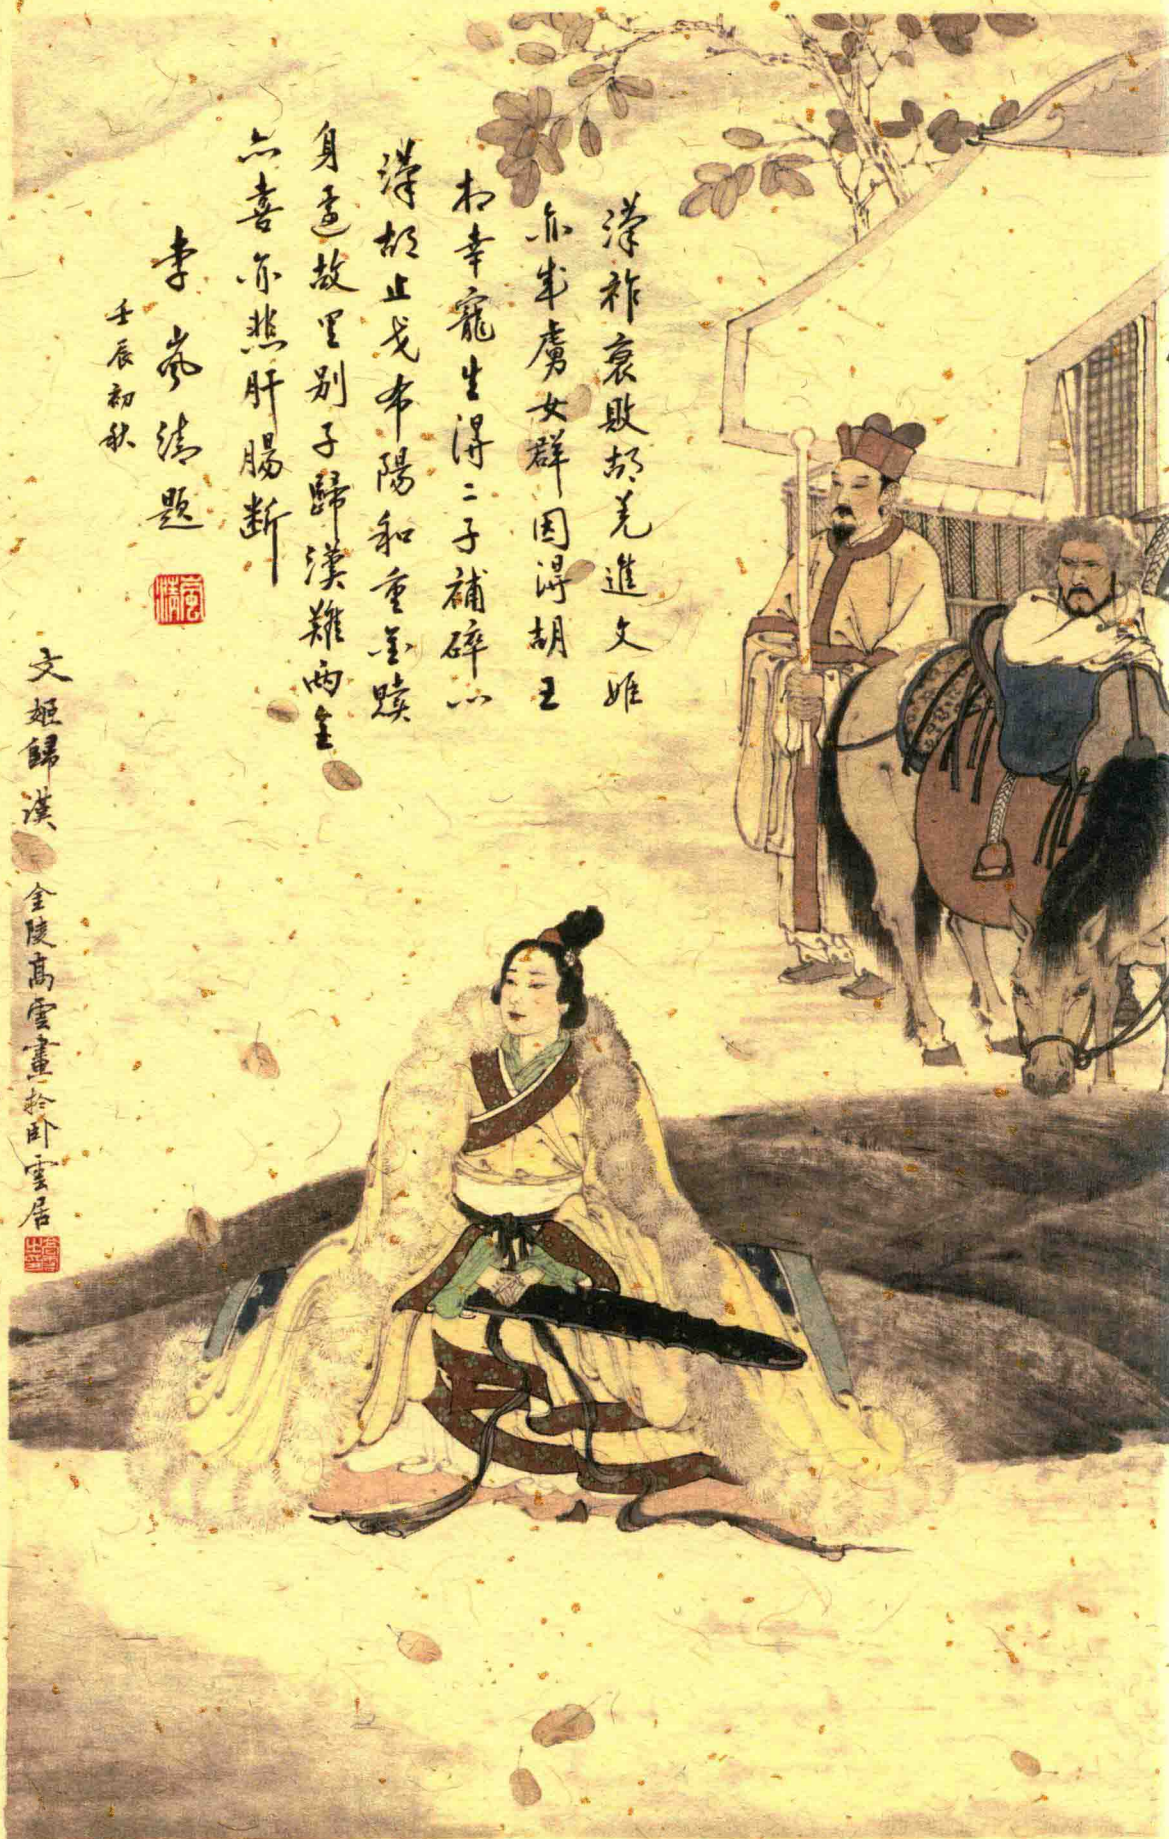 漢祚衰敗胡羌進文姬
亦成虜女群因得胡王
相幸寵生得二子補碎心
漢胡止戈布陽和重金贖
身還故里別子歸漢難兩全
心喜亦悲肝腸斷
李嵐清題
壬辰初秋
嵐清
文姬歸漢 金陵高雲畫於卧雲居